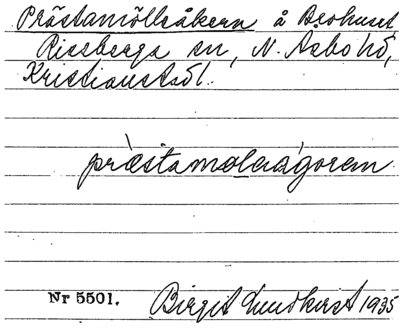 Prästamölleåkern å Brohuset
Riseberga sn, N. Åsbo hd,
Kristianstad l.
præstamøleågoren
Nr 5501. Birgit Lundkvist 1935